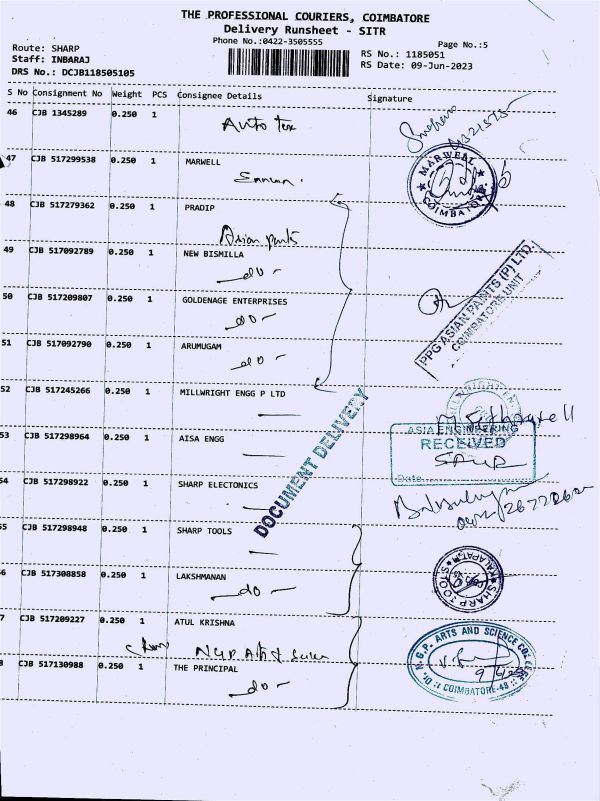 THE PROFESSIONAL COURIERS, COIMBATORE
Delivery Runsheet - SITR
Phone No.:0422-3505555
Page No.:5
Route: SHARP
Staff: INBARAJ
DRS No.: DCJB118505105
RS No.: 1185051
RS Date: 09-Jun-2023
S No Consignment No Weight PCS Consignee Details Signature
46 CJB 1345289 0.250 1
Auto Tex
47 CJB 517299538 0.250 1 MARWELL
MARWELL COIMBATORE
48 CJB 517279362 0.250 1 PRADIP
Asian paints
49 CJB 517092789 0.250 1 NEW BISMILLA
- do -
50 CJB 517209807 0.250 1 GOLDENAGE ENTERPRISES
- do -
PPG ASIAN PAINTS (P) LTD.
COIMBATORE UNIT
51 CJB 517092790 0.250 1 ARUMUGAM
- do -
52 CJB 517245266 0.250 1 MILLWRIGHT ENGG P LTD
DOCUMENT DELIVERY
53 CJB 517298964 0.250 1 AISA ENGG
ASIA ENGINEERING
RECEIVED
Date
54 CJB 517298922 0.250 1 SHARP ELECTONICS
55 CJB 517298948 0.250 1 SHARP TOOLS
SHARP TOOLS
6 CJB 517308858 0.250 1 LAKSHMANAN
- do -
7 CJB 517209227 0.250 1 ATUL KRISHNA
Dr. N.G.P. ARTS AND SCIENCE COLLEGE
COIMBATORE-48
8 CJB 517130988 0.250 1 THE PRINCIPAL
- do -